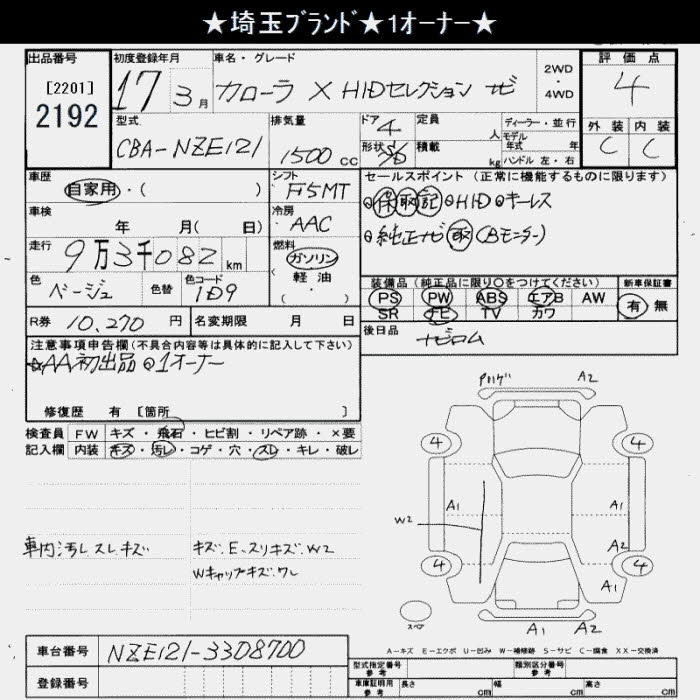 ★埼玉ﾌﾞﾗﾝﾄﾞ★1オーナー★
出品番号 初度登録年月 車名・グレード 評価点
[2201]
2192
17年 3月 カローラ X HIDセレクション ナビ 2WD・4WD 4
型式 排気量 ドア 4 定員 人 ディーラー・並行 外装 内装
CBA-NZE121 1500cc 形状 積載 kg モデル年式 年 C C
ハンドル 左・右
車歴 シフト セールスポイント (正常に機能するものに限ります)
自家用・( ) F5MT ⊙保取記⊙HID⊙キーレス
車検 年 月( 日) 冷房 AAC
走行 9万3千082km 燃料 ガソリン・軽油・( ) ⊙純正ナビ取(Bモニター)
色 ベージュ 色替 色コード 1D9
装備品 (純正品に限り○をつけてください) 新車保証書
PS PW ABS エアB AW 有・無
SR ナビ TV カワ
R券 10,270円 名変期限 月 日 後日品 ナビロム
注意事項申告欄(不具合内容等は具体的に記入して下さい)
☆AA初出品⊙1オーナー
修復歴 有 [箇所 ]
検査員 FW キズ・飛石・ヒビ割・リペア跡・×要
記入欄 内装 キズ・汚レ・コゲ・穴・スレ・キレ・破レ
A2
4 4
A1 A1
W2
A2
4 4
A1
スペア
A1 A2
車内汚レスレキズ キズ.E.スリキズ.W2
Wキャップキズ.ワレ
A-キズ E-エクボ U-凹み W-補修跡 S-サビ C-腐食 XX-交換済
車台番号 NZE121-3308700 型式指定番号 参考 類別区分番号 参考
登録番号 車庫証明用 参考 長さ cm 幅 cm 高さ cm